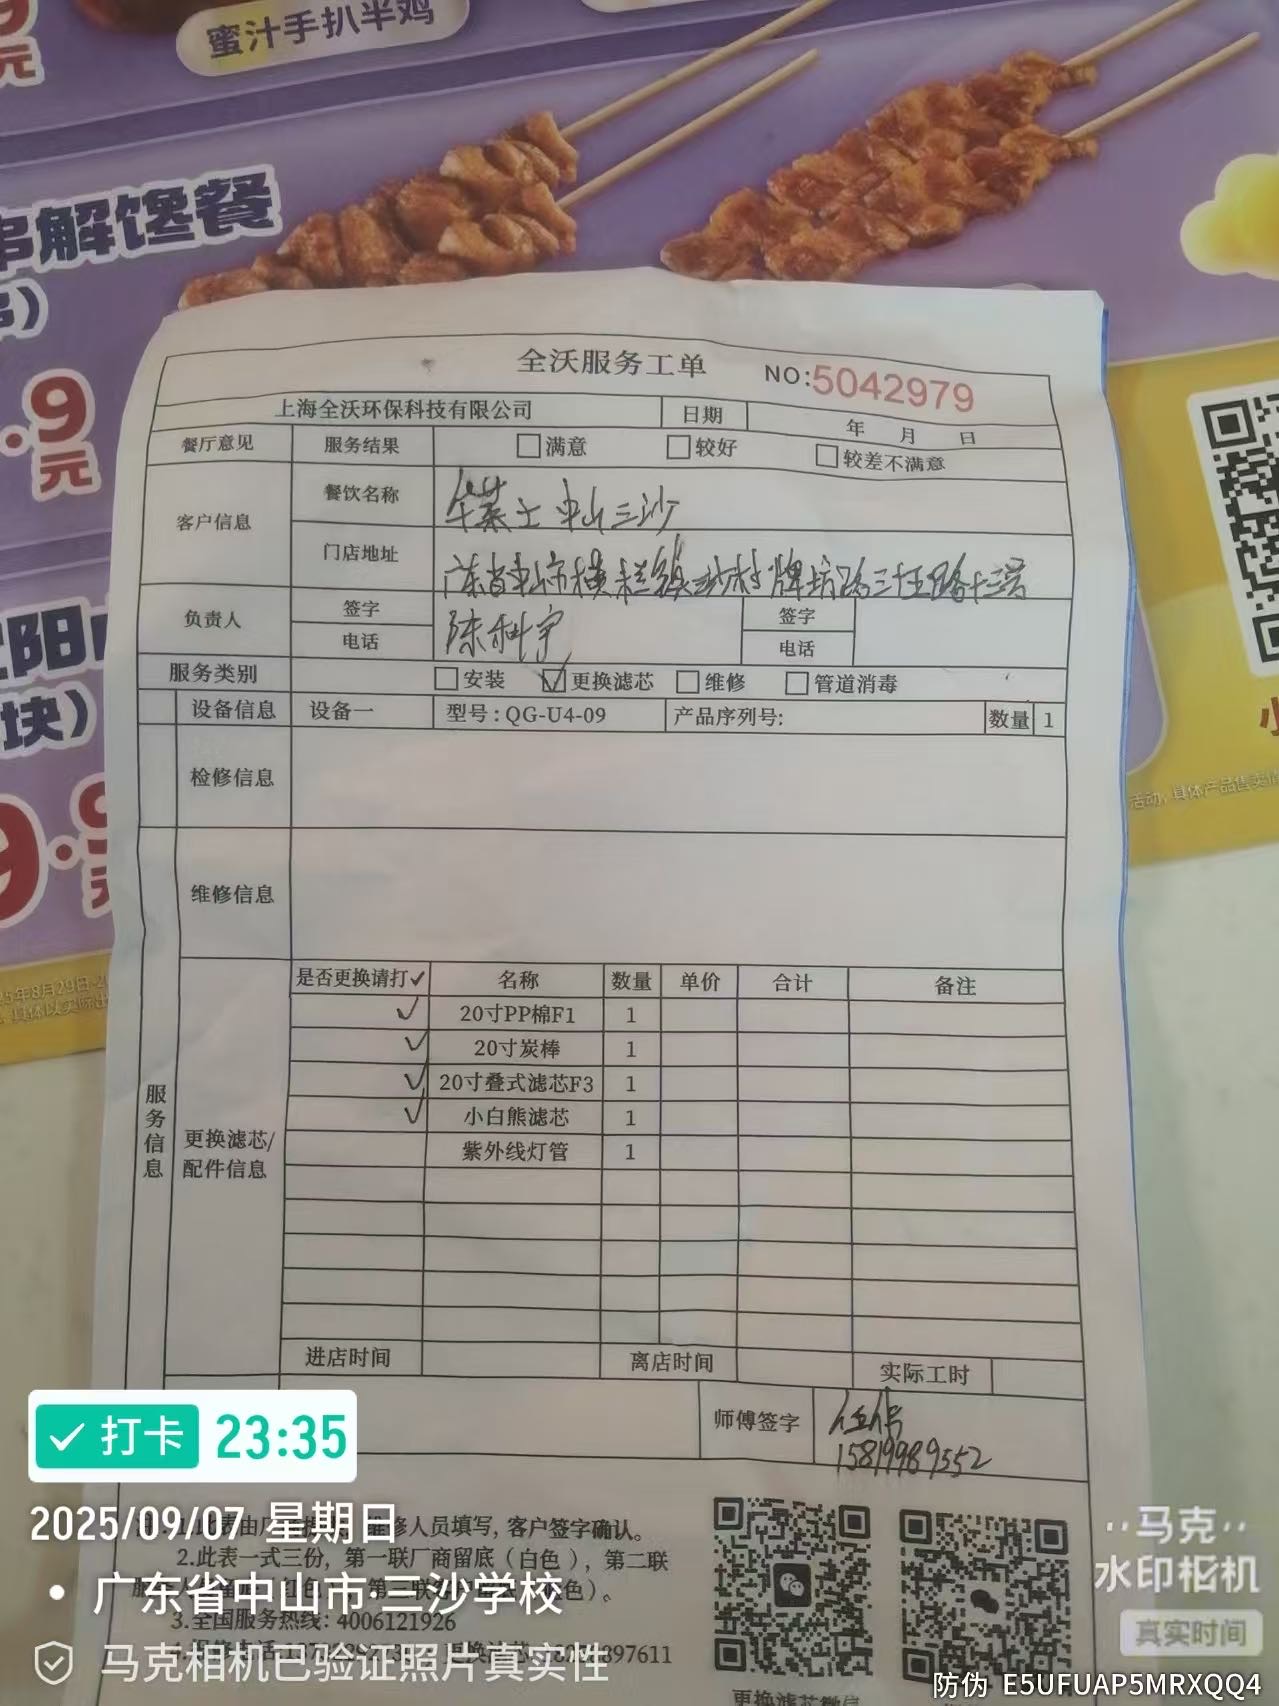 9
元
蜜汁手扒半鸡
串解馋餐
.9
元
块)
9.9
活动，具体产品售卖价
全沃服务工单 NO:5042979
上海全沃环保科技有限公司 日期 年 月 日
餐厅意见 服务结果 满意 较好 较差不满意
客户信息 餐饮名称 华莱士中山三沙
门店地址 广东省中山市横栏镇三沙村牌坊路
负责人 签字 陈科宇 签字
电话 电话
服务类别 安装 ✓更换滤芯 维修 管道消毒
设备信息 设备一 型号:QG-U4-09 产品序列号: 数量 1
检修信息
维修信息
服务信息
更换滤芯/
配件信息
是否更换请打✓ 名称 数量 单价 合计 备注
✓ 20寸PP棉F1 1
✓ 20寸炭棒 1
✓ 20寸叠式滤芯F3 1
✓ 小白熊滤芯 1
紫外线灯管 1
进店时间 离店时间 实际工时
师傅签字
15819989552
✓ 打卡 23:35
2025/09/07 星期日
维修人员填写，客户签字确认。
2.此表一式三份，第一联厂商留底（白色），第二联
•广东省中山市·三沙学校
3.全国服务热线: 4006121926
马克相机已验证照片真实性
马克
水印相机
真实时间
防伪 E5UFUAP5MRXQQ4